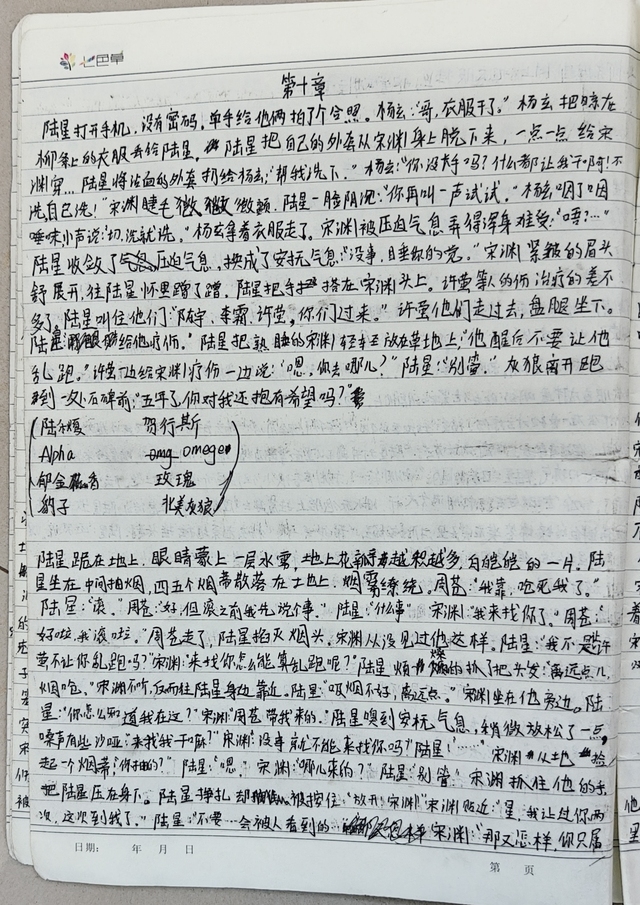 七色草
第十章
陆星打开手机，没有密码。单手给他俩拍了个合照。杨玄："哥，衣服干了。"杨玄把晾在
柳条上的衣服丢给陆星。陆星把自己的外套从宋渊身上脱下来，一点一点给宋
渊穿…陆星将沾血的外套扔给杨玄："帮我洗下。"杨玄："你没长手吗？什么都让我干啊！不
洗自己洗！"宋渊睫毛微微微颤，陆星一脸阴沉："你再叫一声试试。"杨玄咽了咽
唾沫小声说："切，洗就洗。"杨玄拿着衣服走了。宋渊被压迫气息弄得浑身难受："唔？…"
陆星收敛了压迫气息，换成了安抚气息："没事，自垂你的觉。"宋渊紧皱的眉头
舒展开，往陆星怀里蹭了蹭。陆星把手搭在宋渊头上。许萤等人的伤治疗的差不
多了，陆星叫住他们："陆宇、李霜、许萤，你们过来。"许萤他们走过去，盘腿坐下。
陆星："给他疗伤。"陆星把熟睡的宋渊轻轻放在草地上："他醒后不要让他
乱跑。"许萤边给宋渊疗伤一边说："嗯，你去哪儿？"陆星："别管。"灰狼离开跑
到一块小石碑前："五年了，你对我还抱有希望吗？"
陆 贺行斯
Alpha omega
郁金香 玫瑰
豹子 北美灰狼
陆星跪在地上，眼睛蒙上一层水雾，地上花瓣越积越多，白皑皑的一片。陆
星坐在中间抽烟，四五个烟蒂散落在土地上，烟雾缭绕。周苍："我靠，呛死我了。"
陆星："滚。"周苍："好，但滚之前我先说个事。"陆星："什么事"宋渊："我来找你了。"周苍：
"好啦，我滚啦。"周苍走了，陆星掐灭烟头。宋渊从没见过他这样。陆星："我不是许
萤不让你乱跑吗？"宋渊："来找你怎么能算乱跑呢？"陆星烦燥的抓了把头发："离远点儿，
烟呛。"宋渊不听，反而往陆星身边靠近。陆星："吸烟不好，离远点。"宋渊坐在他旁边。陆
星："你怎么知道我在这？"宋渊："周苍带我来的。"陆星嗅到安抚气息，稍微放松了一点，
嗓声有些沙哑："来找我干嘛？"宋渊："没事就不能来找你吗？"陆星："……"宋渊从土地捡
起一个烟蒂："你抽的？"陆星："嗯。"宋渊："哪儿来的？"陆星："别管"宋渊抓住他的手
把陆星压在身下。陆星挣扎却被按住："放开！宋渊！"宋渊贴近："星，我让过你两
次，这次到我了。"陆星："不要…会被人看到的…"宋渊："那又怎样，你只属
日期： 年 月 日
第 页